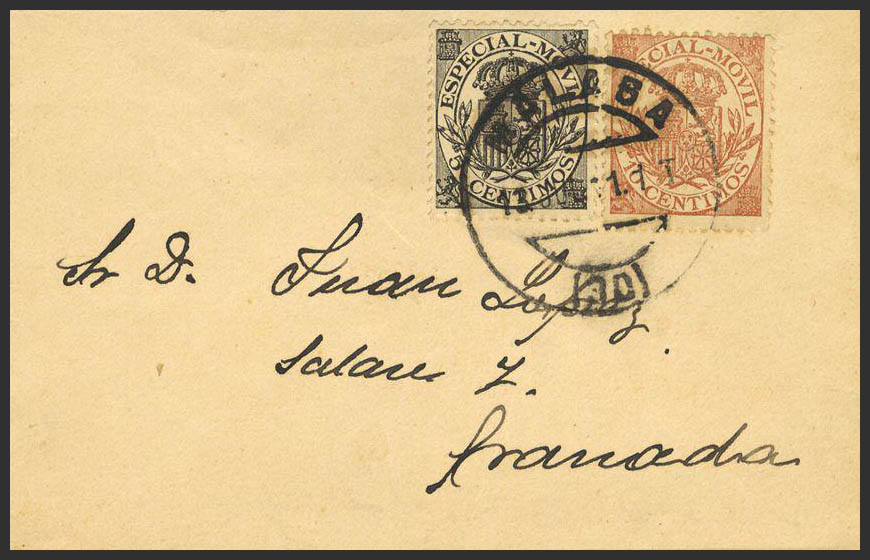 ESPECIAL-MOVIL
5 CS CENTIMOS
ESPECIAL-MOVIL
CENTIMOS
MALAGA
Sr D. Juan Lopez
Salare 7.
Granada